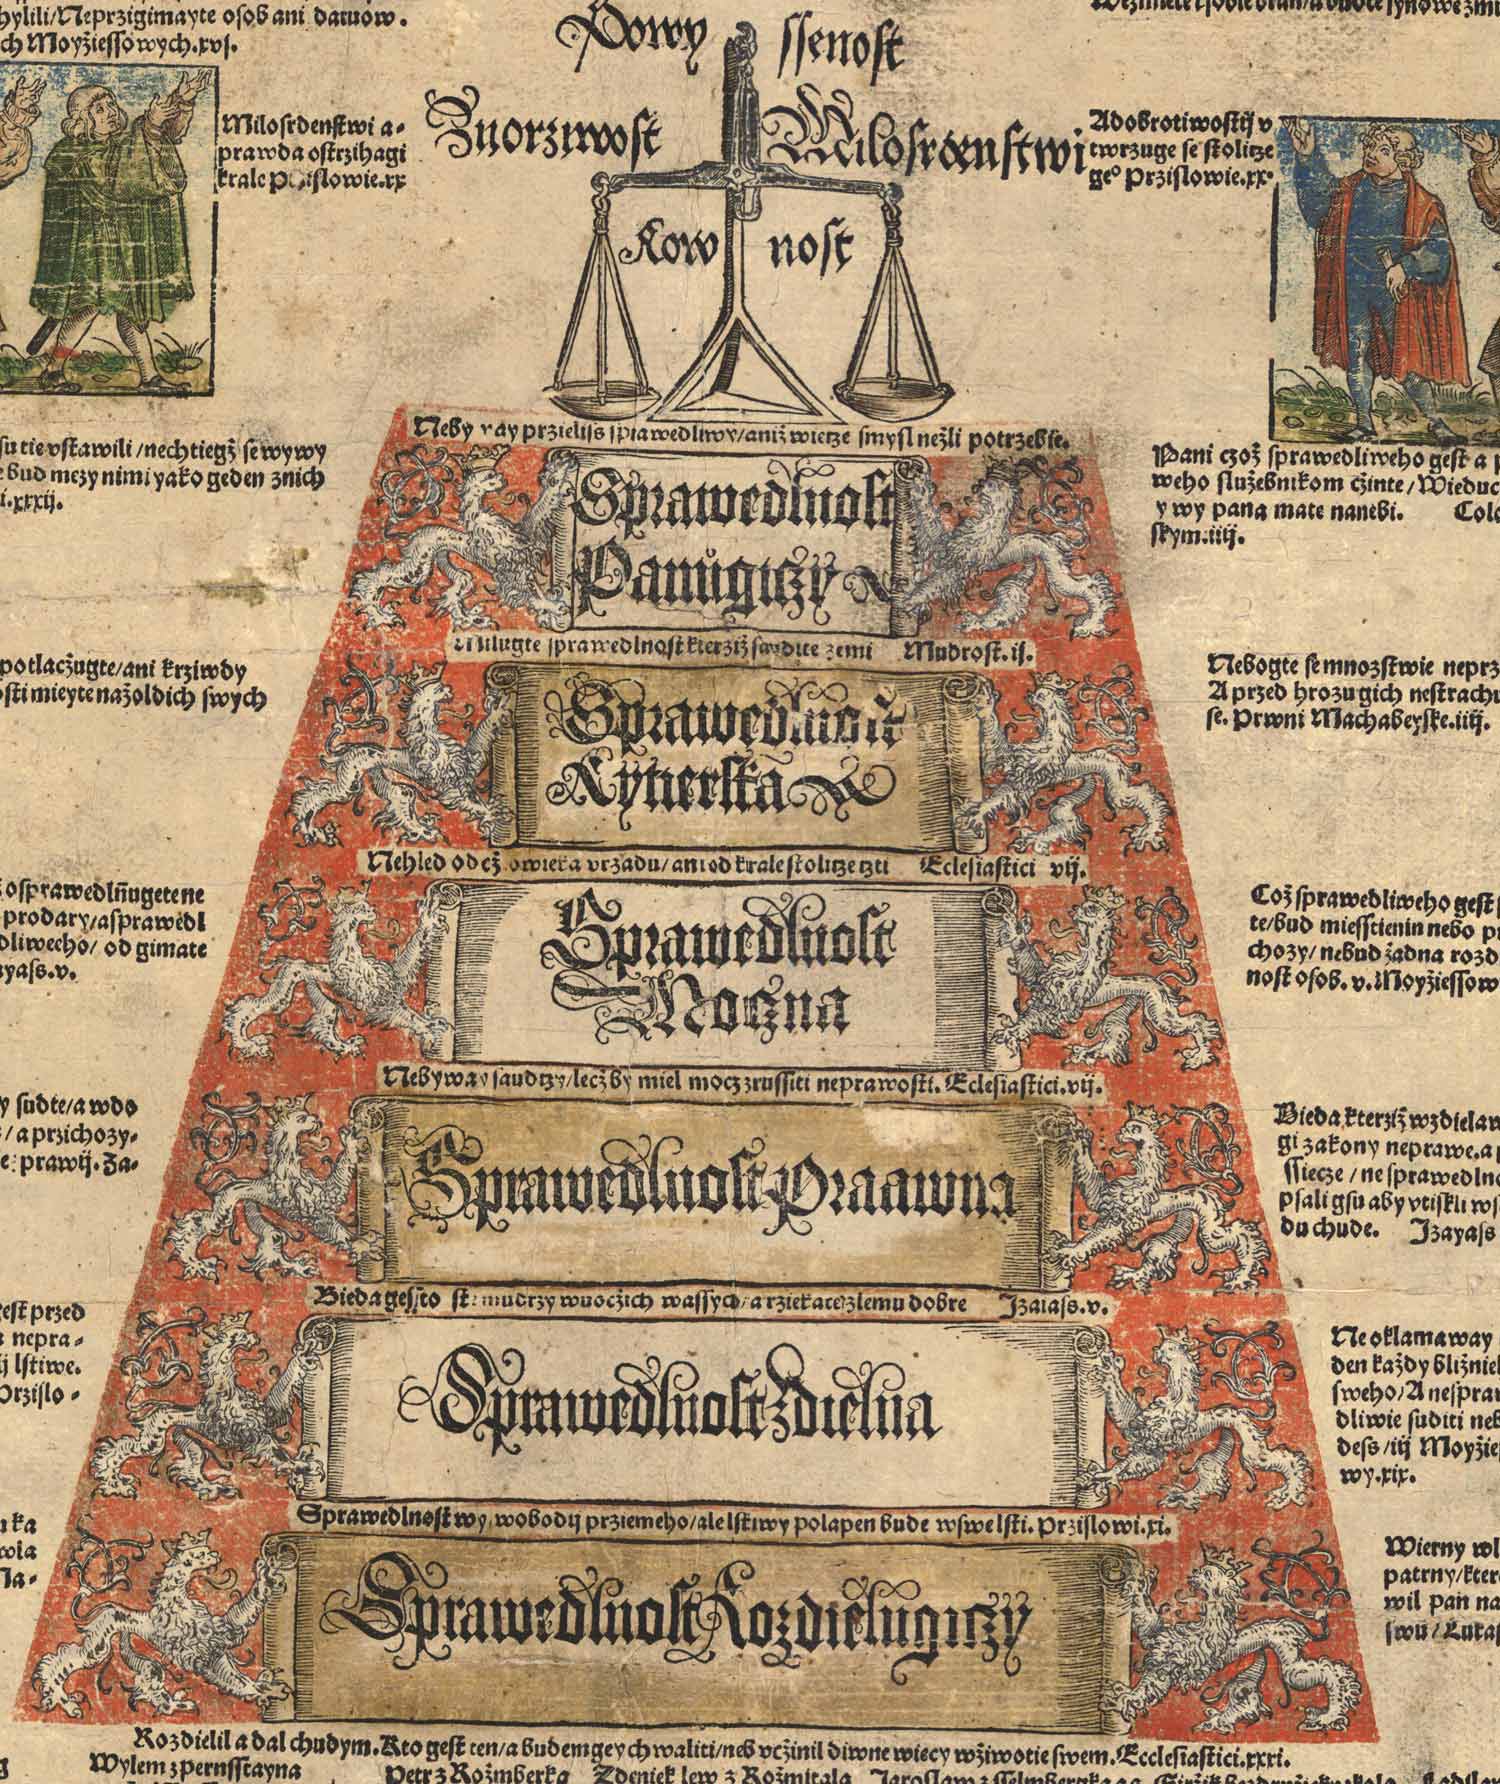 hylili/Neprzigimayte osob ani daruow.
ch Moyžiessowych.xvj.
Powy ssenost
Znorziwost
Milosrdenstwi
Row nost
Milosrdenstwi a-
prawda ostrzihagi
krale Przislowie.xx
A dobrotiwostij v
twrzuge se stolicze
geº Przislowie.xx.
Neby ray przielijs sprawedliwy/aniž wiecze smysl nežli potrzebie.
Sprawedlnost
Panugiczy
Milugte sprawedlnost kterziž saudite zemi Mudrost.ij.
Sprawedlnost
Rytierska
Nehled od cžlowieka vrzadu/ani od krale stolicze czti Eclesiastici vij.
Sprawedlnost
Moczna
Nebyway saudczy/lecž by miel mocz zrussiti neprawosti. Eclesiastici.vij.
Sprawedlnost Praawna
Bieda gessto ste mudrzy wuocžich wassych/a rziekate zlemu dobre Izaias.v.
Sprawedlnost Zdielna
Sprawedlnost wyswobodij prziemeho/ale lstiwy polapen bude wswe lsti. Przislowi.xi.
Sprawedlnost Rozdielugiczy
Rozdielil a dal chudym. Kto gest ten/a budem gey chwaliti/neb vcžinil diwne wiecy wžiwotie swem. Ecclesiastici.xxxi.
su tie vstawili/nechtiegž se wywy
bud mezy nimi yako geden znich
i.xxxij.
potlacžugte/ani krziwdy
osti mieyte na žoldich swych
osprawedlnugete ne
prodary/a sprawedl
dliweho/ od gimate
yass.v.
y sudte/a wdo
/ a przichozy-
prawij. Za-
gest przed
nepra-
ij lstiwe.
Przislo-
Pani czož sprawedliweho gest a
weho služebnikom cžinte/Wieduc
y wy pana mate nanebi. Colo
skym.iiij.
Nebogte se mnozstwie neprz
A przed hrozu gich nestrachu
se. Prwni Machabeyske.iiij.
Což sprawedliweho gest
te/bud miesstienin nebo
chozy/nebud žadna rozd
nost osob. v. Moyžiessow
Bieda kterziž wzdielaw
gi zakony neprawe.a
ssiecze/nesprawedlno
psali gsu aby vtiskli
du chude. Izayass
Ne oklamaway
den každy bližnie
sweho/A nespra
dliwie suditi neb
dess/iij Moyžie
wy.xix.
Wierny wl
patrny/kter
wil pan na
swu/Lukas
Wylem z Pernsstayna
Petr z Rožmberka Zdeniek lew z Rožmitala